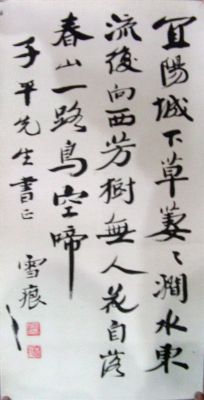 宜陽城下草萋〻澗水東
流復向西芳樹無人花自落
春山一路鳥空啼
子平先生書正
雪痕